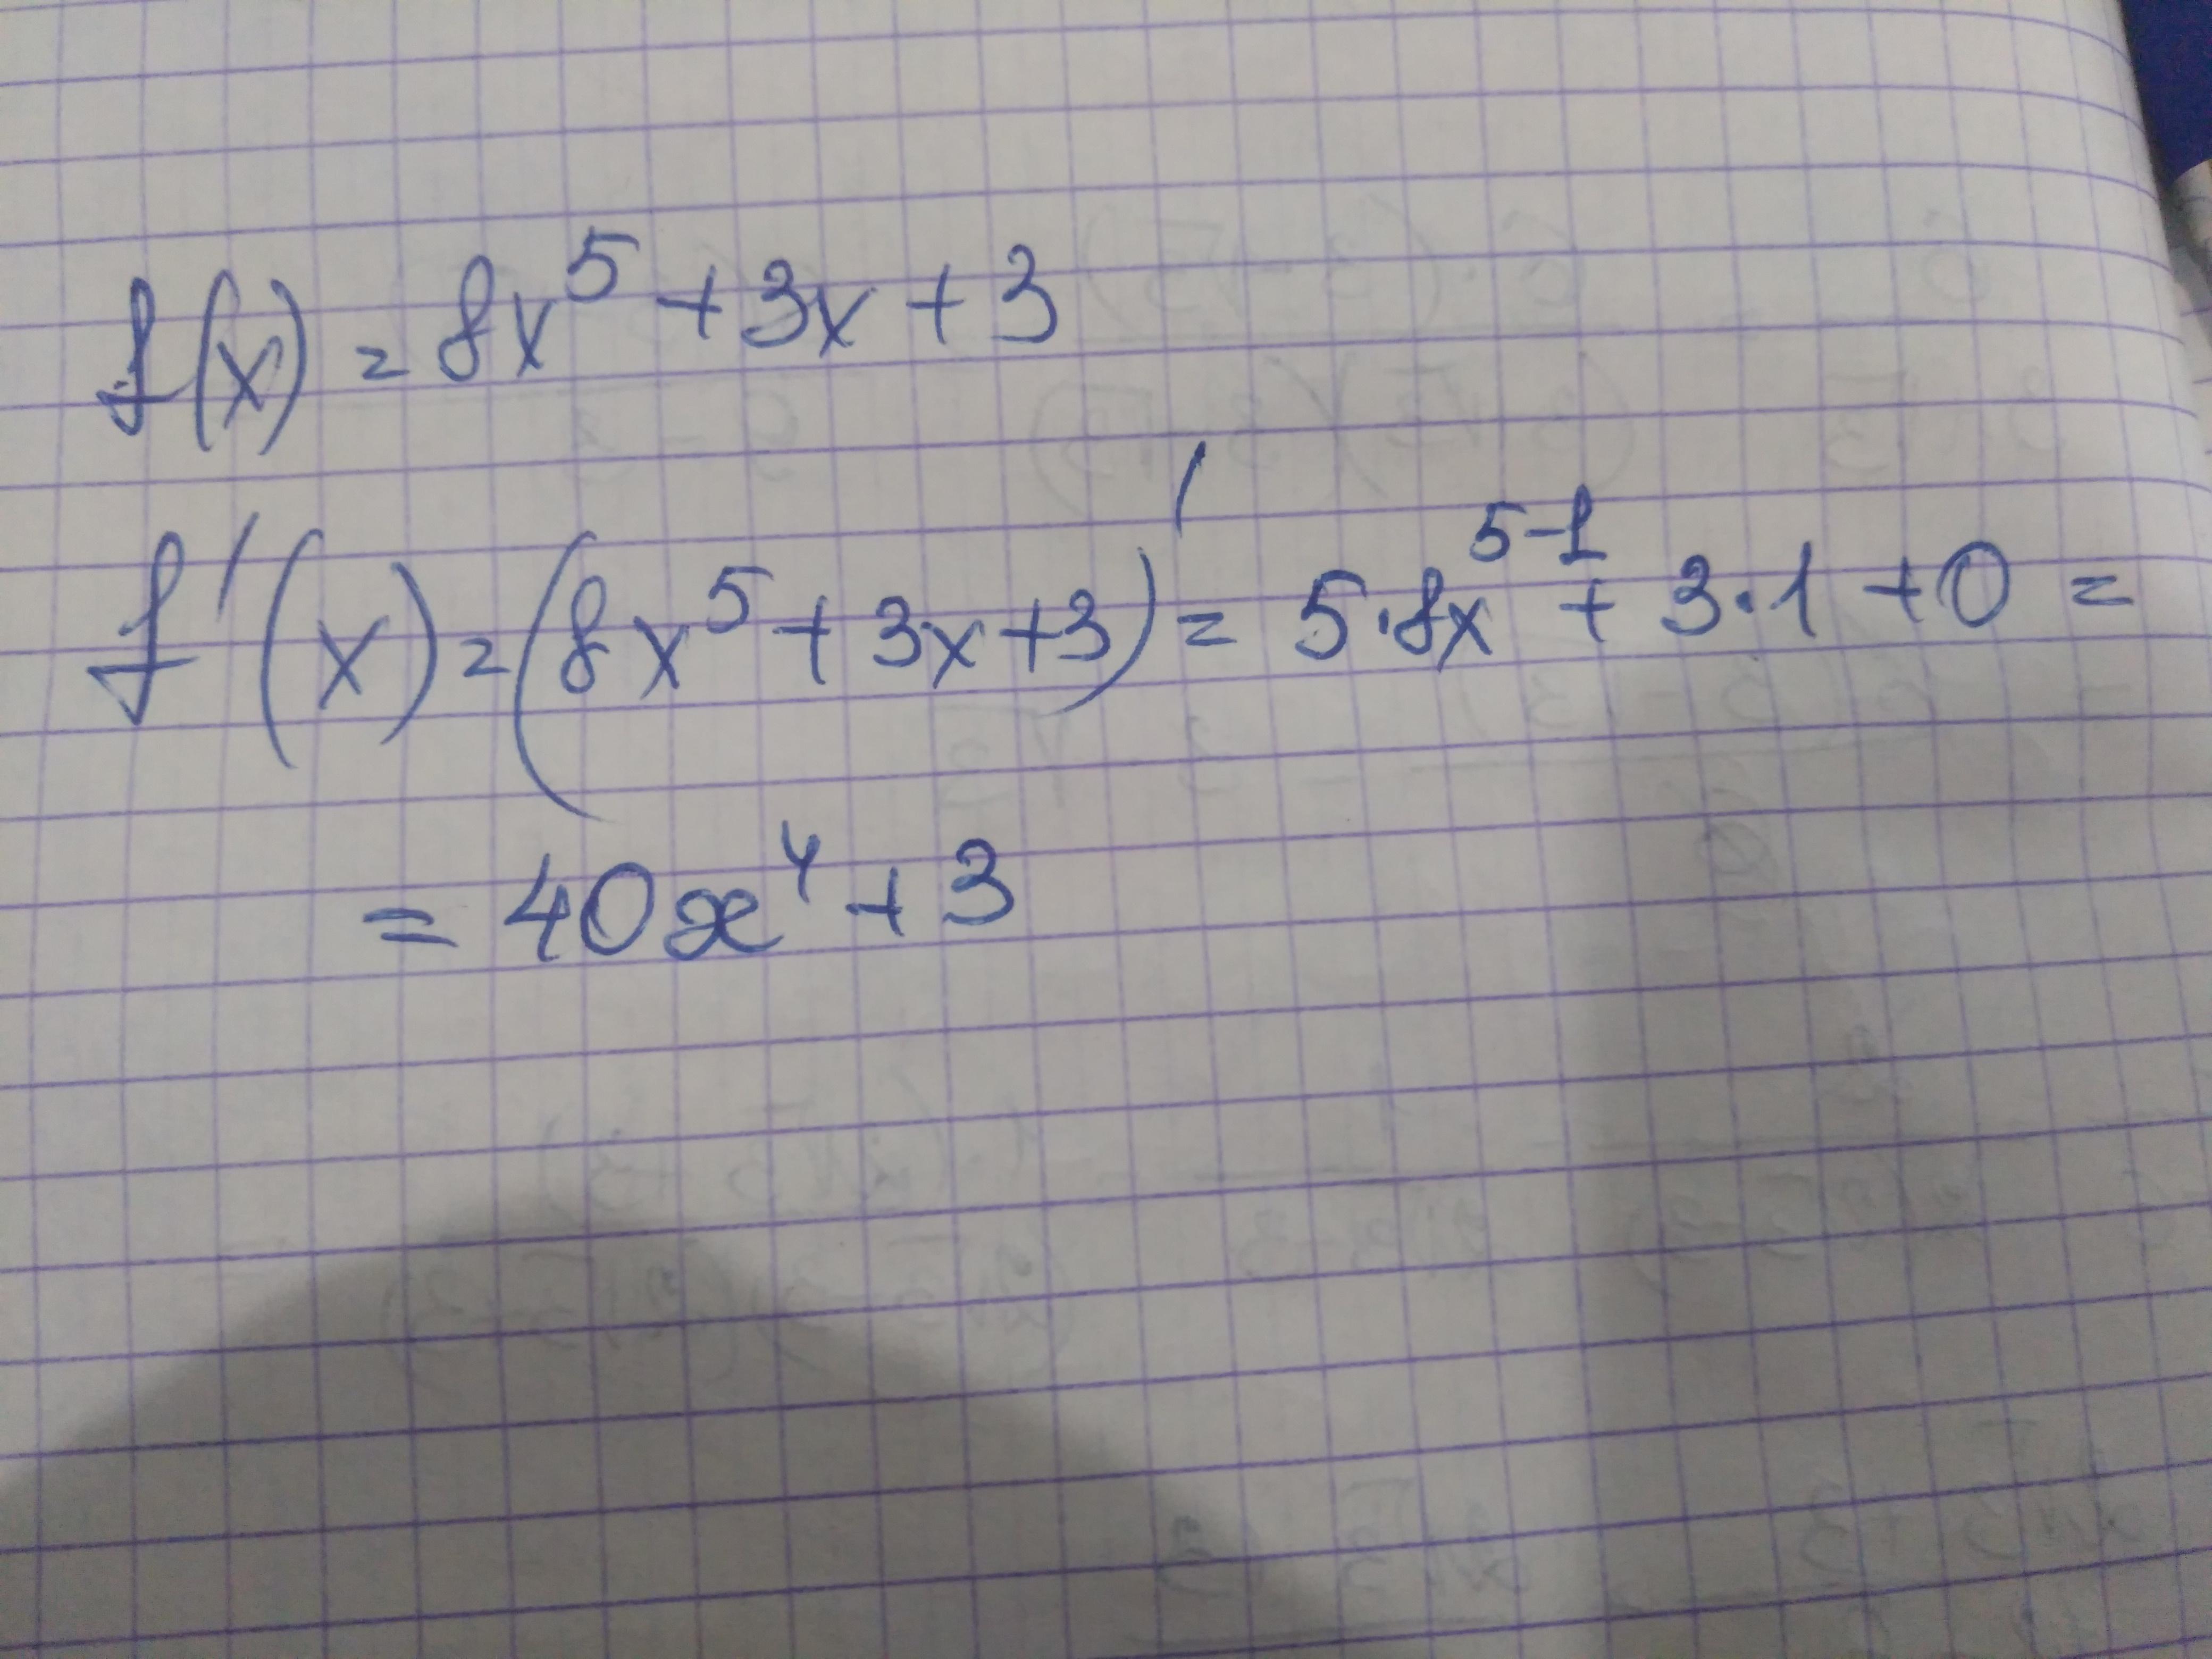 f(x) = 8x⁵ + 3x + 3
f'(x) = (8x⁵ + 3x + 3)' = 5·8x⁵⁻¹ + 3·1 + 0 =
= 40x⁴ + 3